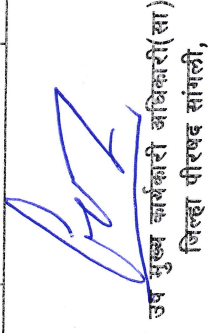 उप मुख्य कार्यकारी अधिकारी(सा)
जिल्हा परिषद सांगली,